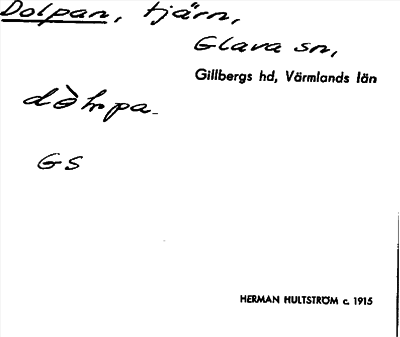 Dolpan, tjärn,
Glava sn,
Gillbergs hd, Värmlands län
GS
HERMAN HULTSTRÖM c. 1915